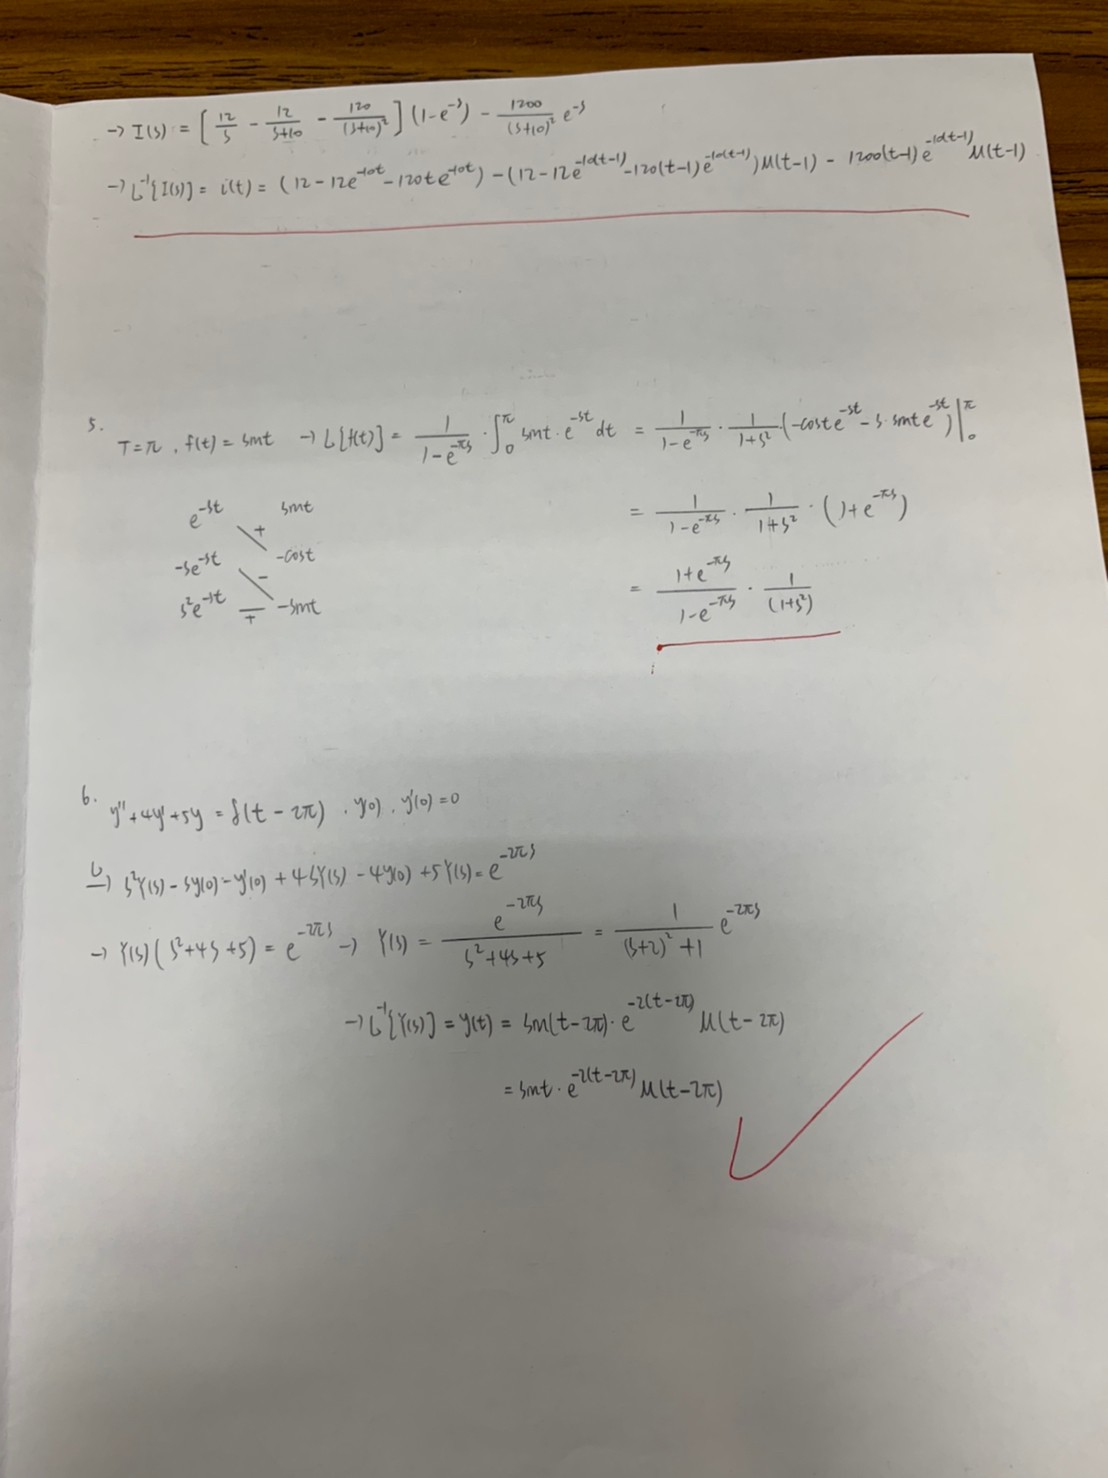 → I(s) = [12/s - 12/(s+10) - 120/(s+10)²] (1-e^-s) - 1200/(s+10)² e^-s
→ L⁻¹{I(s)} = i(t) = (12-12e^-10t -120te^-10t) - (12-12e^-10(t-1) -120(t-1)e^-10(t-1))u(t-1) - 1200(t-1)e^-10(t-1) u(t-1)
5.
T=π , f(t) = sint → L{f(t)} = 1/(1-e^-πs) · ∫₀^π sint · e^-st dt = 1/(1-e^-πs) · 1/(1+s²) · (-cost e^-st - s·sint e^-st)|₀^π
e^-st + sint
= 1/(1-e^-πs) · 1/(1+s²) · (1+e^-πs)
-se^-st - -cost
s²e^-st + -sint
= (1+e^-πs)/(1-e^-πs) · 1/(1+s²)
6.
y''+4y'+5y = δ(t-2π) , y(0) , y'(0)=0
L→ s²Y(s) - sy(0) - y'(0) + 4sY(s) - 4y(0) + 5Y(s) = e^-2πs
→ Y(s)(s²+4s+5) = e^-2πs → Y(s) = e^-2πs/(s²+4s+5) = 1/((s+2)²+1) e^-2πs
→ L⁻¹{Y(s)} = y(t) = sin(t-2π) · e^-2(t-2π) u(t-2π)
= sint · e^-2(t-2π) u(t-2π)